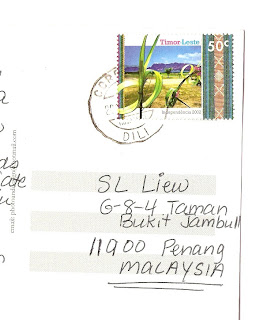 Timor-Leste
50c
Independência 2002
DILI
ds
ate
SL Liew
G-8-4 Taman
Bukit Jambull
11900 Penang
MALAYSIA